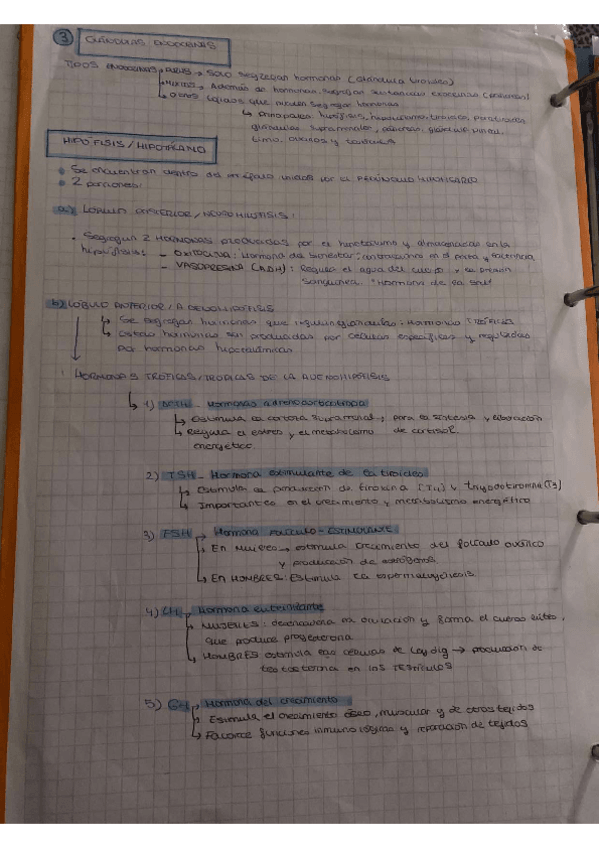 3 GLÁNDULAS ENDOCRINAS
TIPOS ENDOCRINAS → PURAS → Solo segregan hormonas (Glándula tiroides)
→ MIXTAS → Además de hormonas, segregan sustancias exocrinas (páncreas)
→ Otros tejidos que pueden segregar hormonas
↳ Principales: hipófisis, hipotálamo, tiroides, paratiroides
glándulas suprarrenales, páncreas, glándula pineal,
timo, ovarios y testículos
HIPÓFISIS / HIPOTÁLAMO
Se encuentran dentro del unidos por el PEDÚNCULO HIPOFISARIO
2 porciones:
a) LÓBULO POSTERIOR / NEUROHIPÓFISIS:
Segregan 2 HORMONAS PRODUCIDAS por el hipotálamo y almacenadas en la
hipófisis: - OXITOCINA: Hormona del bienestar, contracciones en el parto y lactancia
- VASOPRESINA (ADH): Regula el agua del cuerpo y la presión
sanguínea. "Hormona de la sal"
b) LÓBULO ANTERIOR / ADENOHIPÓFISIS
↳ Se segregan hormonas que regulan glándulas: HORMONAS TRÓFICAS
↳ Estas hormonas son producidas por células específicas y reguladas
por hormonas hipotalámicas
HORMONAS TRÓFICAS/TRÓPICAS DE LA ADENOHIPÓFISIS
↳ 1) ACTH - Hormonas adrenocorticotropa
↳ Estimula la corteza suprarrenal → para la síntesis y liberación
↳ Regula el estrés y el metabolismo de cortisol.
energético.
2) TSH - Hormona estimulante de la tiroides
↳ Estimula la producción de tiroxina (T4) y triyodotironina (T3)
↳ Importantes en el crecimiento y metabolismo energético
3) FSH → Hormona FOLÍCULO-ESTIMULANTE
↳ En MUJERES → estimula crecimiento del folículo ovárico
y producción de estrógenos.
↳ En HOMBRES: Estimula la espermatogénesis.
4) LH → Hormona luteinizante
→ MUJERES: desencadena la ovulación y forma el cuerpo lúteo,
que produce progesterona
→ HOMBRES estimula las células de Leydig → producción de
testosterona en los TESTÍCULOS
5) GH → Hormona del crecimiento
→ Estimula el crecimiento óseo, muscular y de otros tejidos
→ Favorece funciones inmunológicas y reparación de tejidos